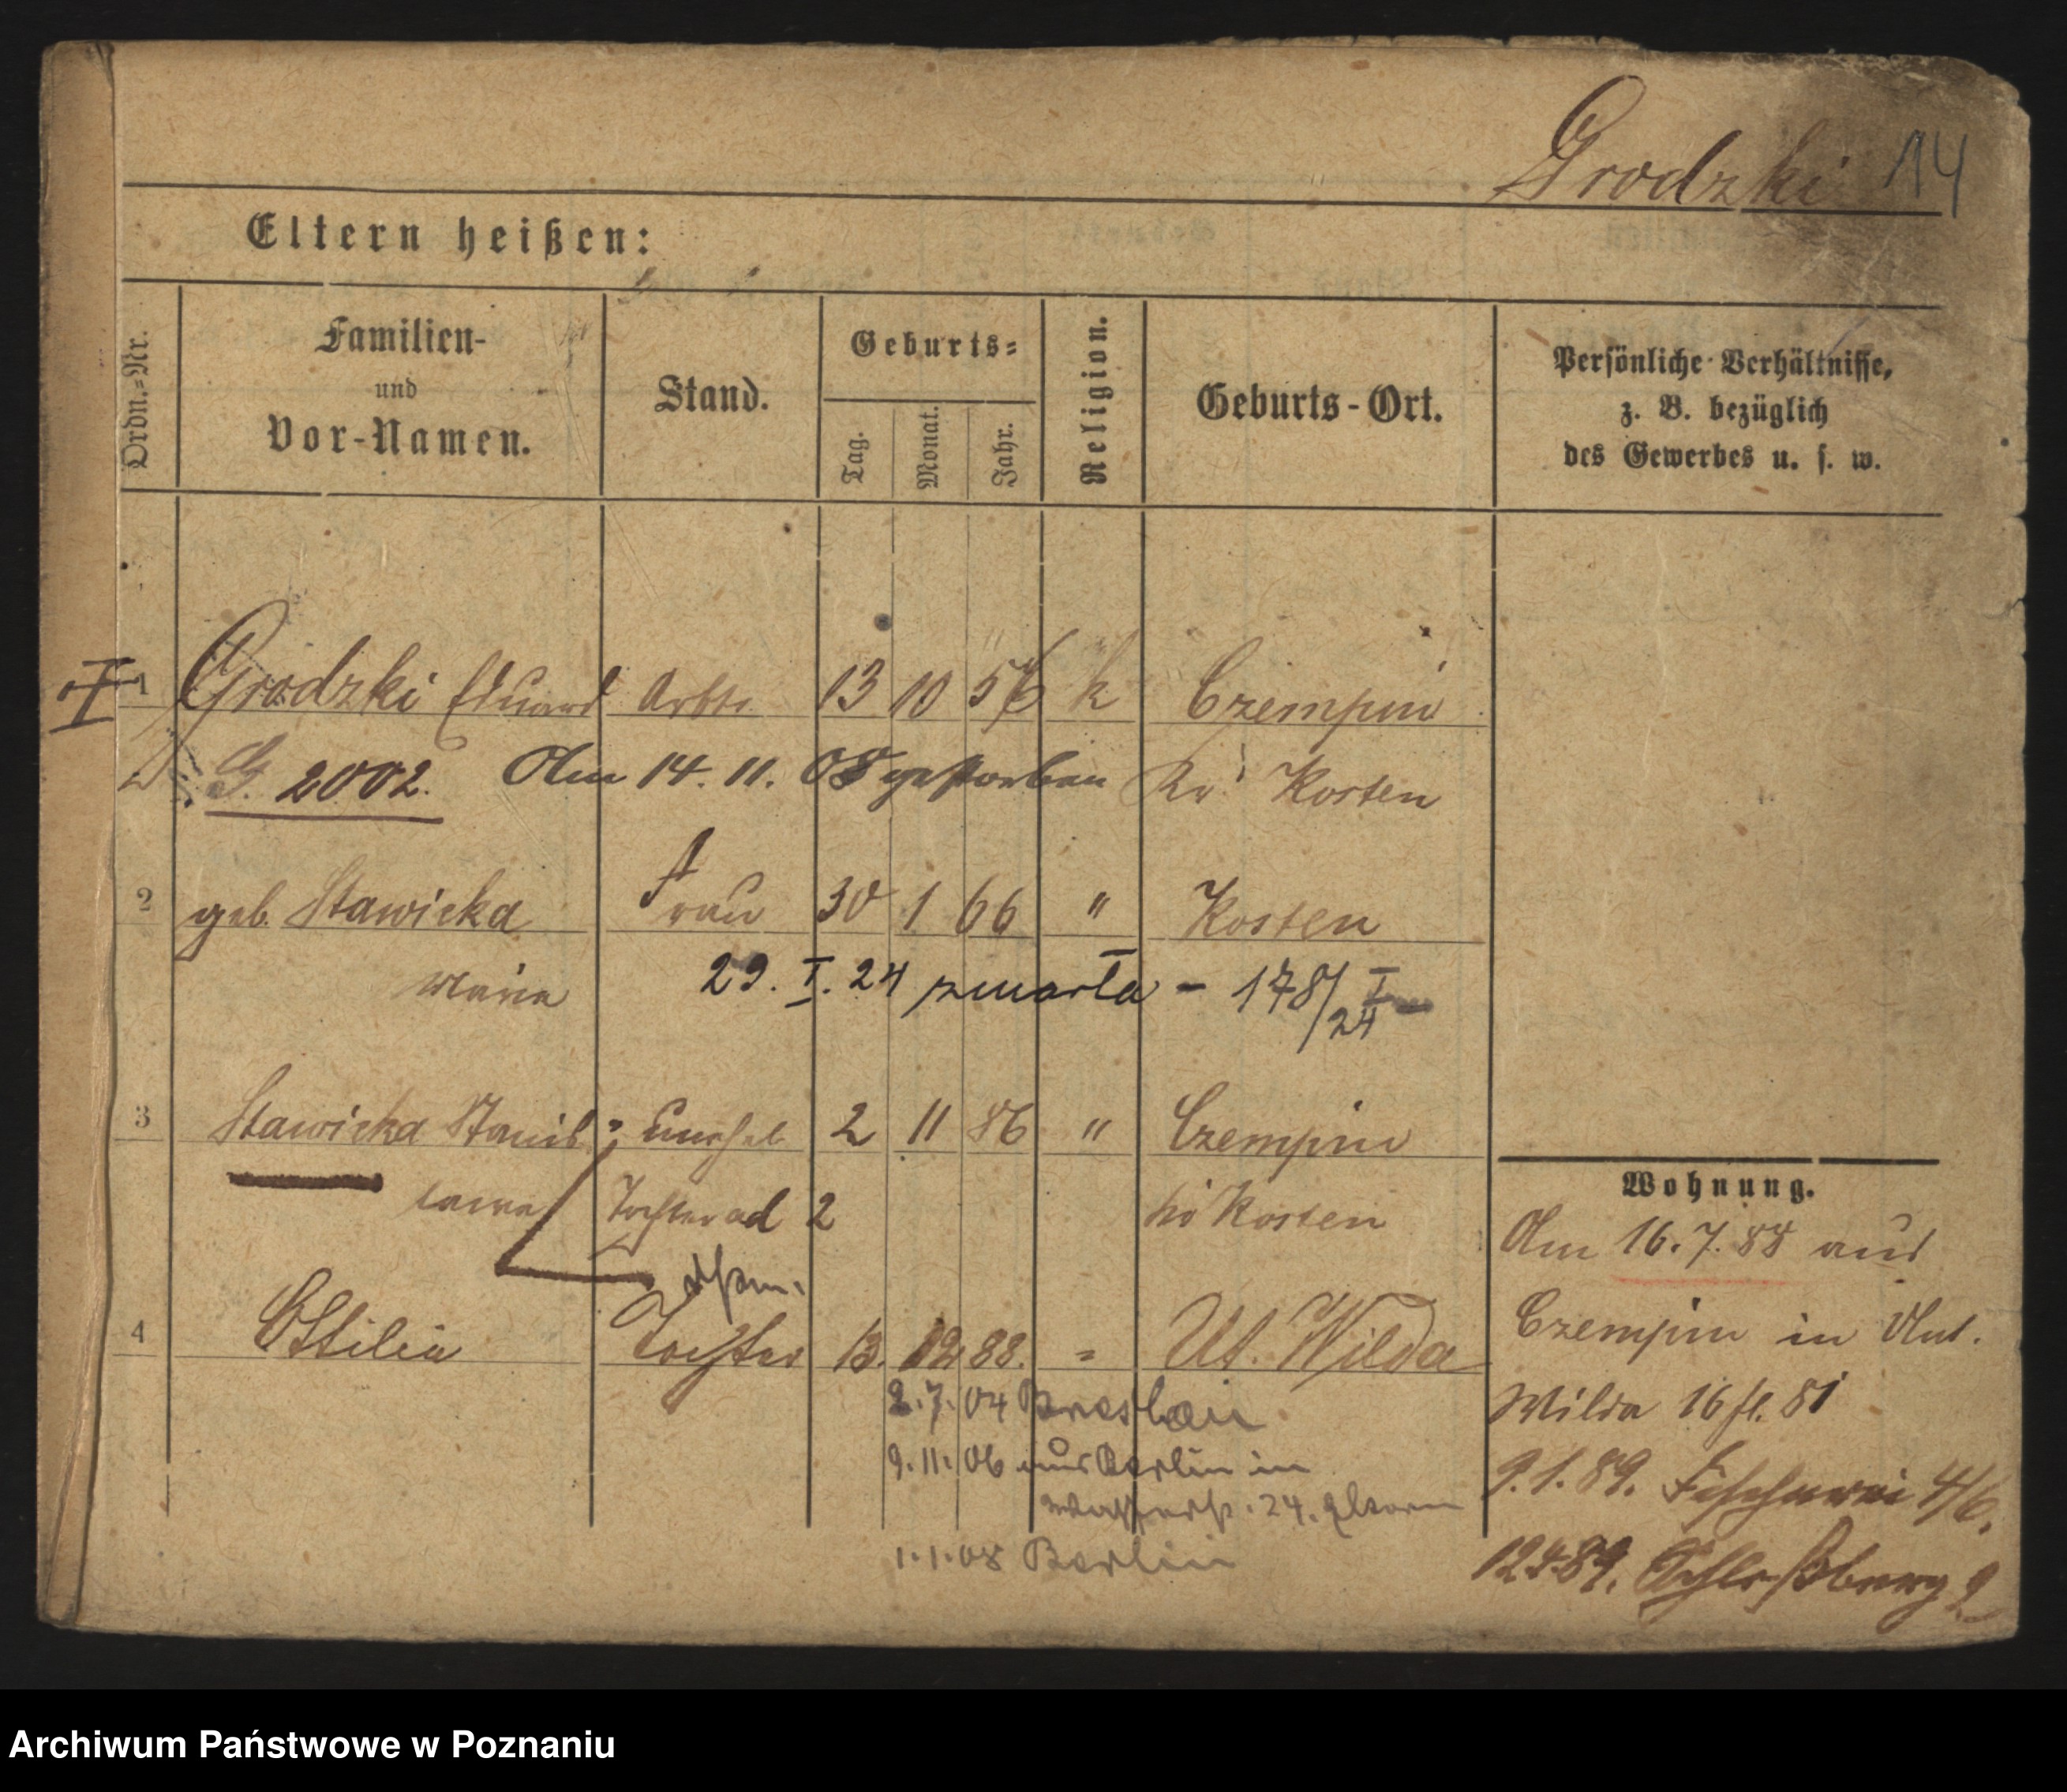 Grodzki 14
Eltern heißen:
Ordn.=Nr.
Familien- und Vor-Namen.
Stand.
Geburts=
Tag.
Monat.
Jahr.
Religion.
Geburts-Ort.
Persönliche Verhältnisse, z. B. bezüglich des Gewerbes u. s. w.
I
1 Grodzki Eduard Arbtr 13 10 56 k Czempin
G. 2002. Am 14. 11. 08 gestorben Kr Kosten
2 geb. Stawicka Frau 30 1 66 " Kosten
Maria 29. I. 24 zmarła - 178/I 24
3 Stawicka Stanis= unehel 2 11 86 " Czempin
lawa Tochter ad 2 Kosten
4 Ottilia Tochter 13. 12 88. " Ut. Wilda
2. 7. 04 Breslau
9. 11. 06 aus Berlin in
24. Eltern
1. 1. 08 Berlin
Wohnung.
Am 16. 7. 88 aus
Czempin in Unt.
Wilda 16 fl. 81
9. 1. 89. Fischerei 4/6.
12 4 89. Schloßberg 2